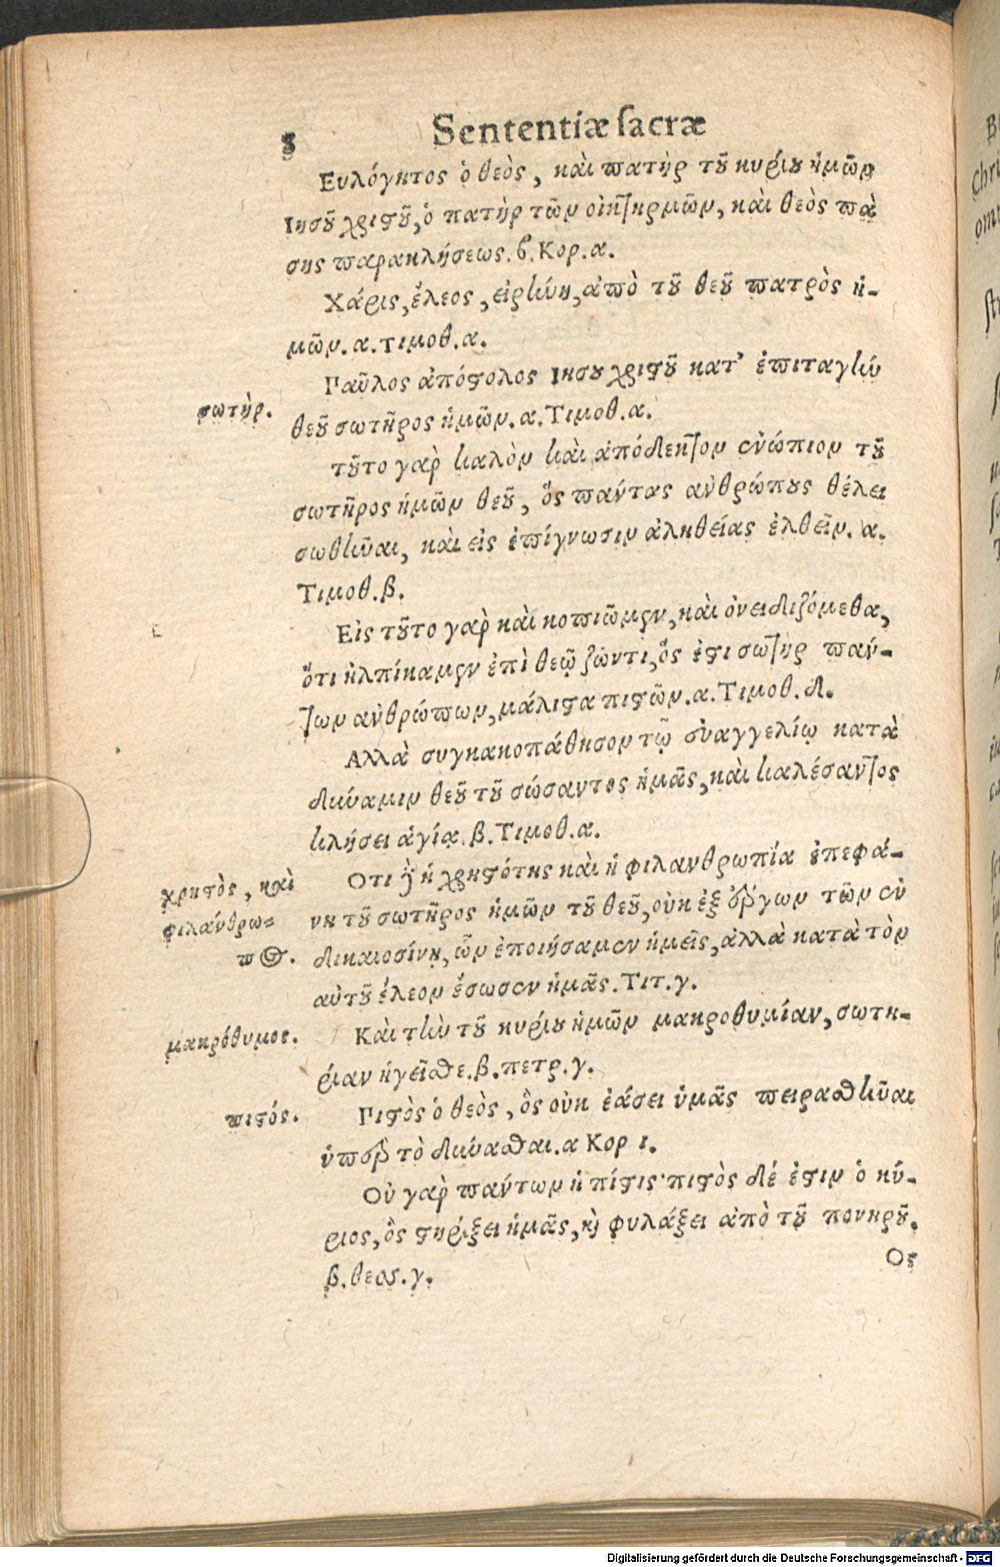 8 Sententiæ sacræ
Ευλόγητος ὁ θεὸς, καὶ πατὴρ τοῦ κυρίου ἡμῶν
Ιησοῦ χριστοῦ, ὁ πατὴρ τῶν οἰκτηρμῶν, καὶ θεὸς πὰ
σης παρακλήσεως. β. Κορ. α.
Χάρις, ἔλεος, εἰρήνη, ἀπὸ τοῦ θεοῦ πατρὸς ἡ-
μῶν. α. τιμοθ. α.
Γαῦλος ἀπόστολος Ιησου χριστοῦ κατ' ἐπιταγὴν
σωτὴρ.
θεοῦ σωτῆρος ἡμῶν. α. Τιμοθ. α.
τοῦτο γαρ καλὸν καὶ ἀπόδεκτον ἐνώπιον τοῦ
σωτῆρος ἡμῶν θεοῦ, ὅς παντας ανθρώπους θέλει
σωθῆναι, καὶ εἰς ἐπίγνωσιν ἀληθείας ἐλθεῖν. α.
Τιμοθ. β.
Εἰς τοῦτο γαρ καὶ κοπιῶμεν, καὶ ὀνειδιζόμεθα,
ὅτι ἠλπίκαμεν ἐπὶ θεῷ ζῶντι, ὅς ἐστι σωτὴρ παν-
των ἀνθρώπων, μάλιστα πιστῶν. α. Τιμοθ. δ.
Αλλὰ συγκακοπάθησον τῷ εὐαγγελίῳ κατὰ
δύναμιν θεοῦ τοῦ σώσαντος ἡμᾶς, καὶ καλέσαντος
κλήσει ἁγίᾳ. β. Τιμοθ. α.
χρηστὸς, καὶ
φιλάνθρω-
πος.
Οτι γὰρ ἡ χρηστότης καὶ ἡ φιλανθρωπία ἐπεφά-
νη τοῦ σωτῆρος ἡμῶν τοῦ θεοῦ, οὐκ ἐξ ἔργων τῶν ἐν
δικαιοσίνῃ, ὧν ἐποιήσαμεν ἡμεῖς, ἀλλὰ κατὰ τὸν
αὐτοῦ ἔλεον ἔσωσεν ἡμᾶς. Τιτ. γ.
μακρόθυμος.
Καὶ τὴν τοῦ κυρίου ἡμῶν μακροθυμίαν, σωτη-
ρίαν ἡγεῖσθε. β. πετρ. γ.
πιστός.
Γιστὸς ὁ θεὸς, ὃς οὐκ ἐάσει ὑμᾶς πειρασθῆναι
ὑπὲρ τὸ δύνασθαι. α Κορ ι.
Οὐ γαρ παντων ἡ πίστις· πιστὸς δέ ἐστιν ὁ κύ-
ριος, ὃς στηρίξει ἡμᾶς, καὶ φυλάξει ἀπὸ τοῦ πονηροῦ.
β. θεσς. γ.
Ος
Digitalisierung gefördert durch die Deutsche Forschungsgemeinschaft - DFG